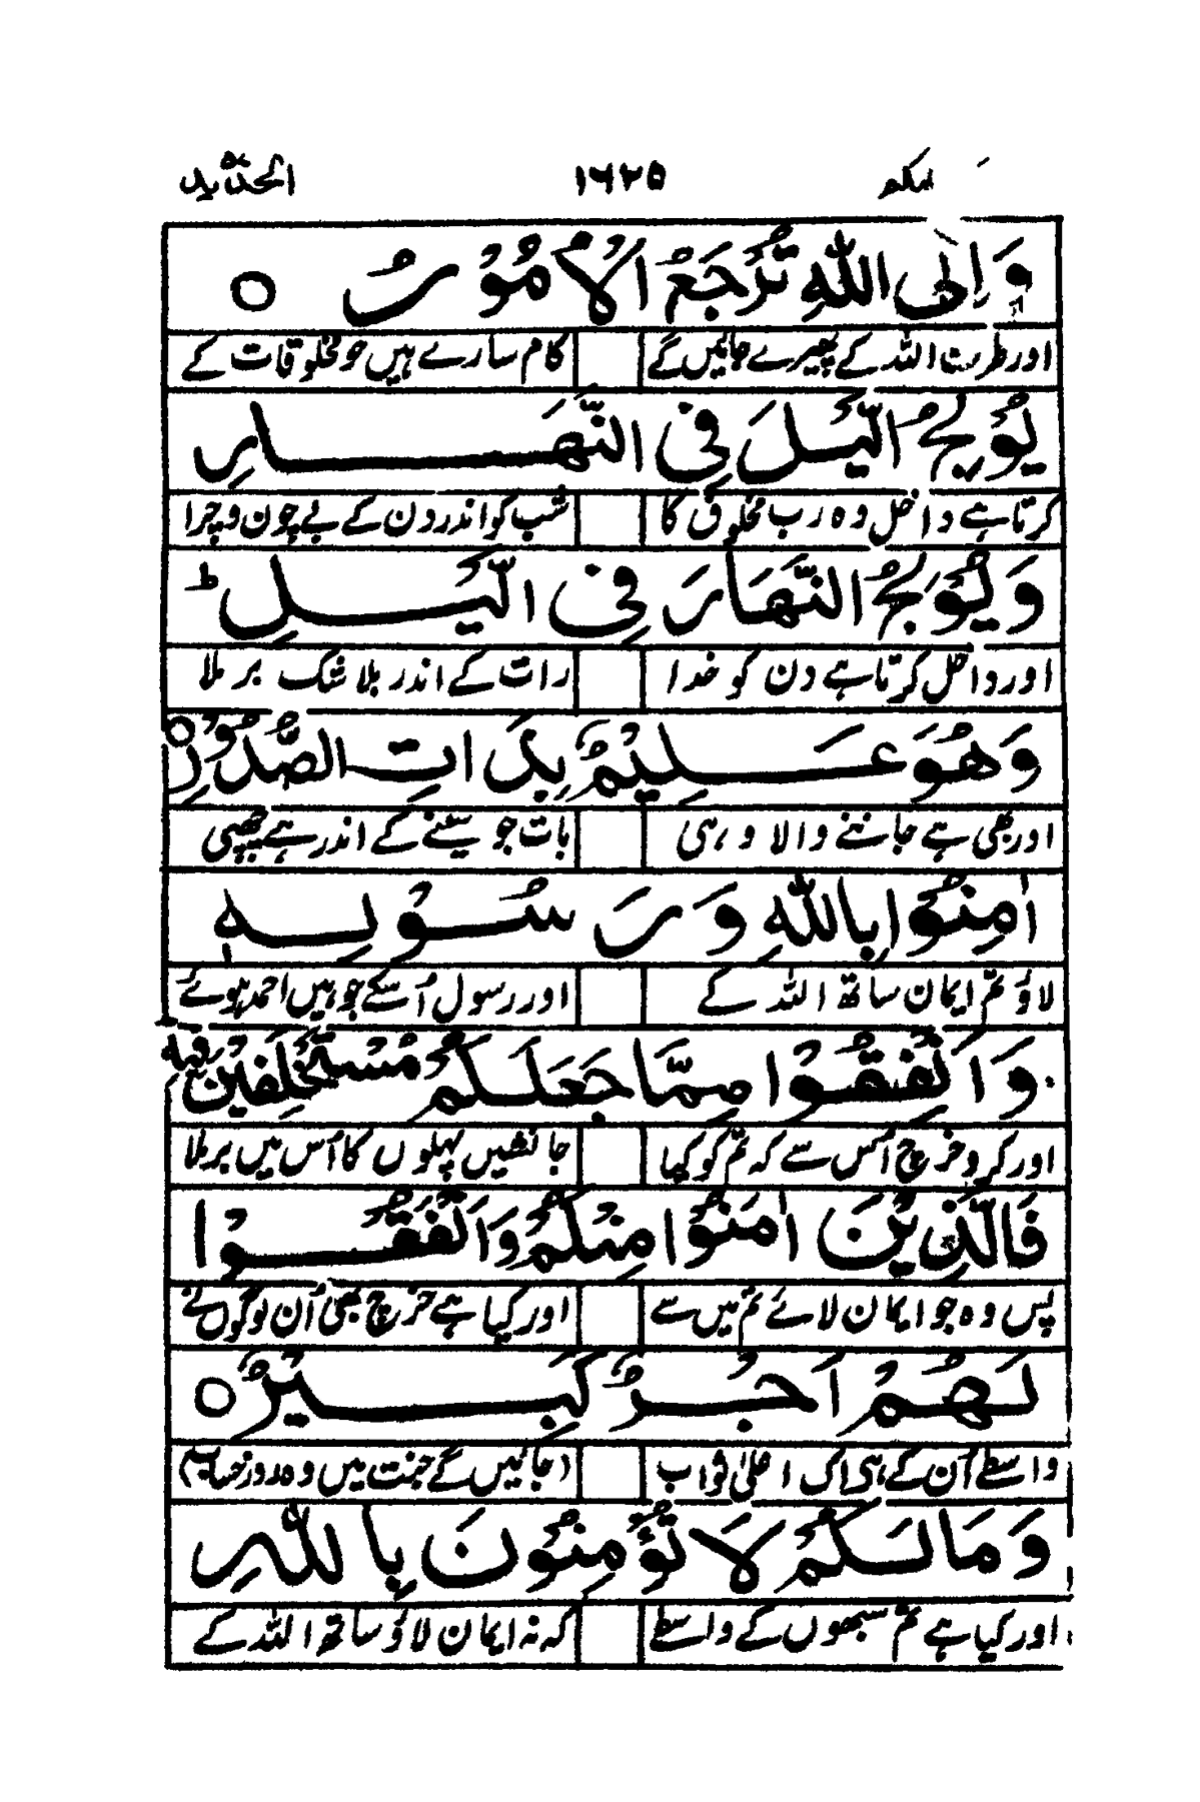 الحدید ۱۶۲۵
وَاِلَى اللّٰهِ تُرْجَعُ الْاُمُوْرُ ○
اور طرف اللہ کے پھیرے جائیں گے کام سارے ہیں جو مخلوقات کے
يُوْلِجُ الَّيْلَ فِى النَّهَارِ
کرتا ہے داخل وہ رب مخلوق کا شب کو اندر دن کے بے چون و چرا
وَيُوْلِجُ النَّهَارَ فِى الَّيْلِ ؕ
اور داخل کرتا ہے دن کو خدا رات کے اندر بلا شک برملا
وَهُوَ عَلِيْمٌۢ بِذَاتِ الصُّدُوْرِ ○
اور بھی ہے جاننے والا وہی بات جو سینے کے اندر ہے چھپی
اٰمِنُوْا بِاللّٰهِ وَرَسُوْلِهٖ
لاؤ تم ایمان ساتھ اللہ کے اور رسول اُسکے جو ہیں احمد ہوئے
وَاَنْفِقُوْا مِمَّا جَعَلَكُمْ مُّسْتَخْلَفِيْنَ فِيْهِ ؕ
اور کرو خرچ اُس سے کہ تم کو کیا جانشیں پہلوں کا اُس میں برملا
فَالَّذِيْنَ اٰمَنُوْا مِنْكُمْ وَاَنْفَقُوْا
پس وہ جو ایمان لائے تم میں سے اور کیا ہے خرچ بھی اُن لوگوں نے
لَهُمْ اَجْرٌ كَبِيْرٌ ○
واسطے اُن کے ہی اک اعلیٰ ثواب (جائیں گے جنت میں وہ روز حساب)
وَمَا لَكُمْ لَا تُؤْمِنُوْنَ بِاللّٰهِ
اور کیا ہے تم سبھوں کے واسطے کہ نہ ایمان لاؤ ساتھ اللہ کے